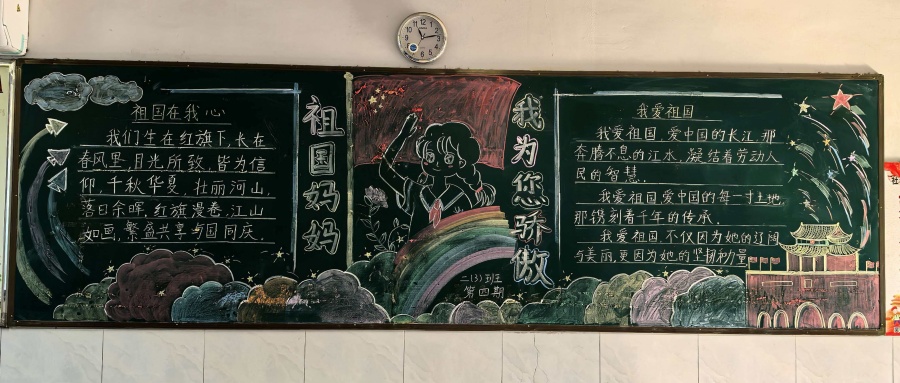 祖国在我心
我们生在红旗下,长在
春风里,目光所致,皆为信
仰,千秋华夏,壮丽河山,
落日余晖,红旗漫卷,江山
如画,繁盛共享与国同庆.
祖国妈妈
我为您骄傲
二(3)班
第四期
我爱祖国
我爱祖国,爱中国的长江,那
奔腾不息的江水,凝结着劳动人
民的智慧.
我爱祖国,爱中国的每一寸土地,
那镌刻着千年的传承.
我爱祖国,不仅因为她的辽阔
与美丽,更因为她的坚韧和力量